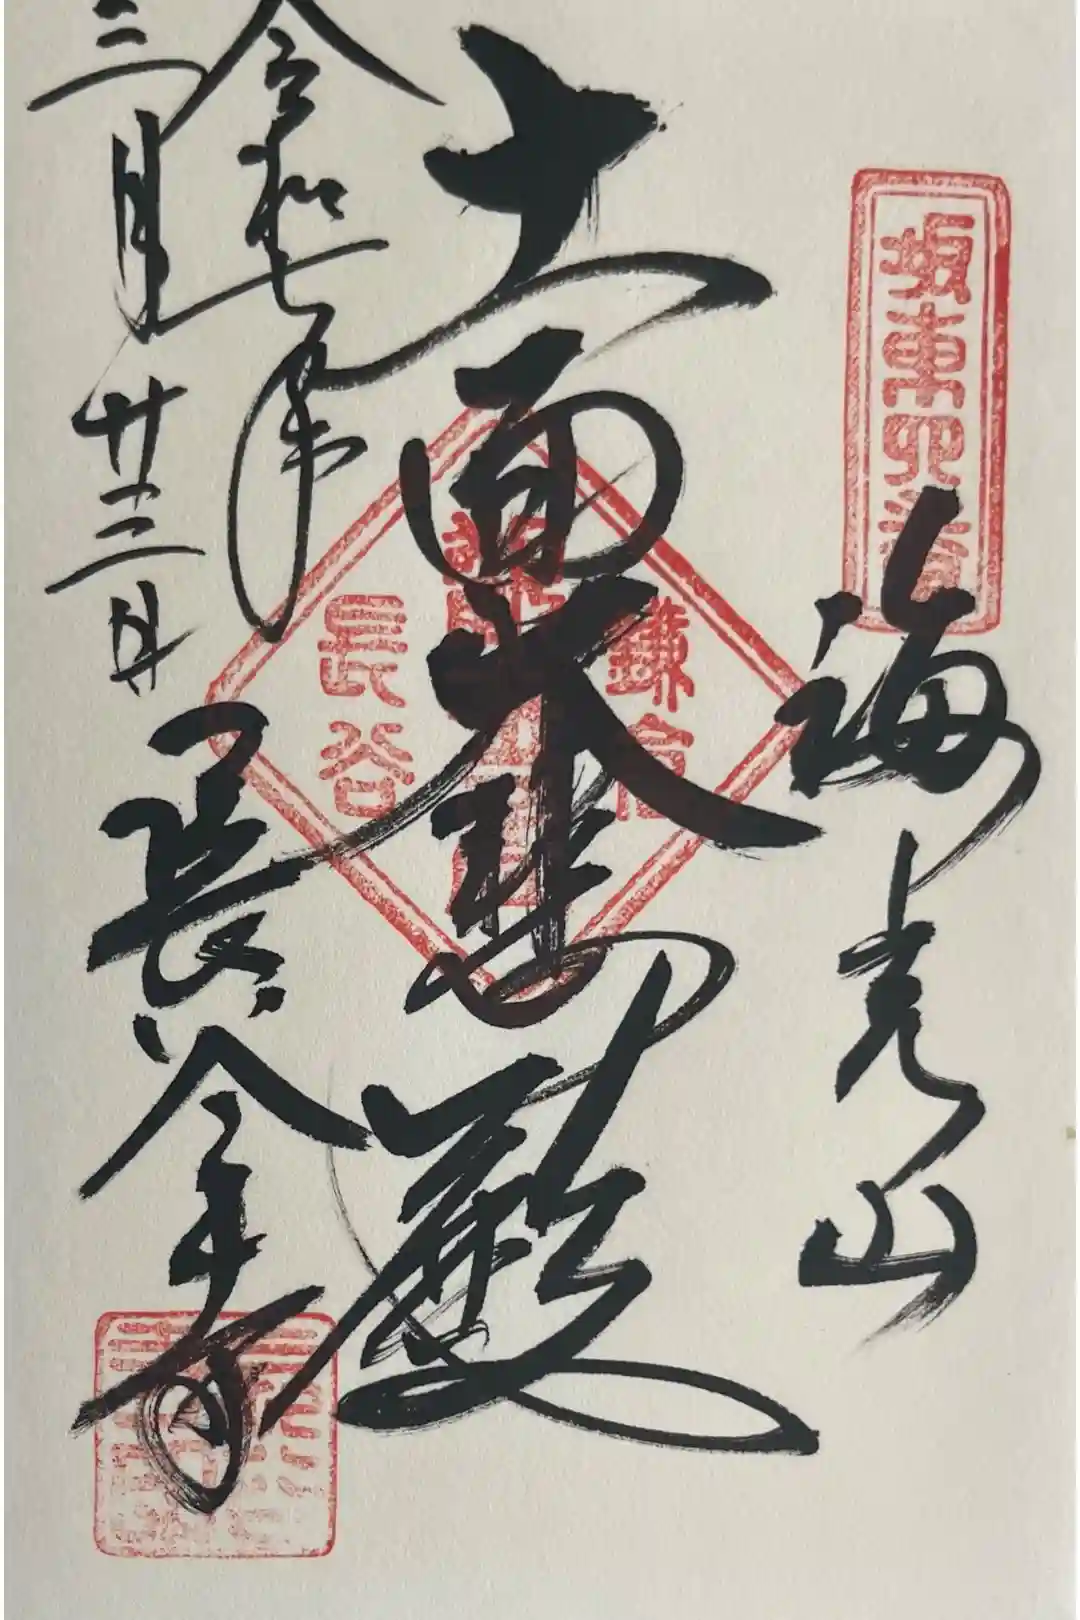 坂東四番
海光山
十一面大悲殿
鎌倉
長谷
長谷寺
令和七年
三月廿三日